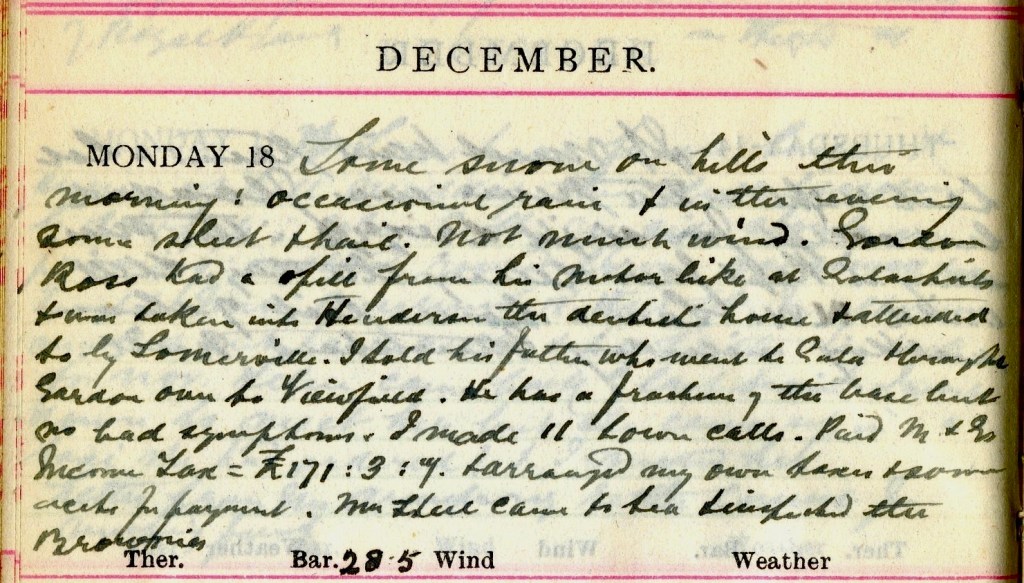 DECEMBER.
MONDAY 18 Some snow on hills this
morning: occasional rain & in the evening
some sleet & hail. Not much wind. Gordon
Ross had a spill from his motor bike at Galashiels
& was taken into Henderson the dentist's house & attended
to by Somerville. I told his father who went to Gala & brought
Gordon over to Viewfield. He has a fracture of the base but
no bad symptoms. I made 11 town calls. Paid M. &
Income Tax = £171:3:9. & arranged my own taxes & some
accts for payment. Mrs Steel came to tea & inspected the
Brownies
Ther. Bar. 28.5 Wind Weather